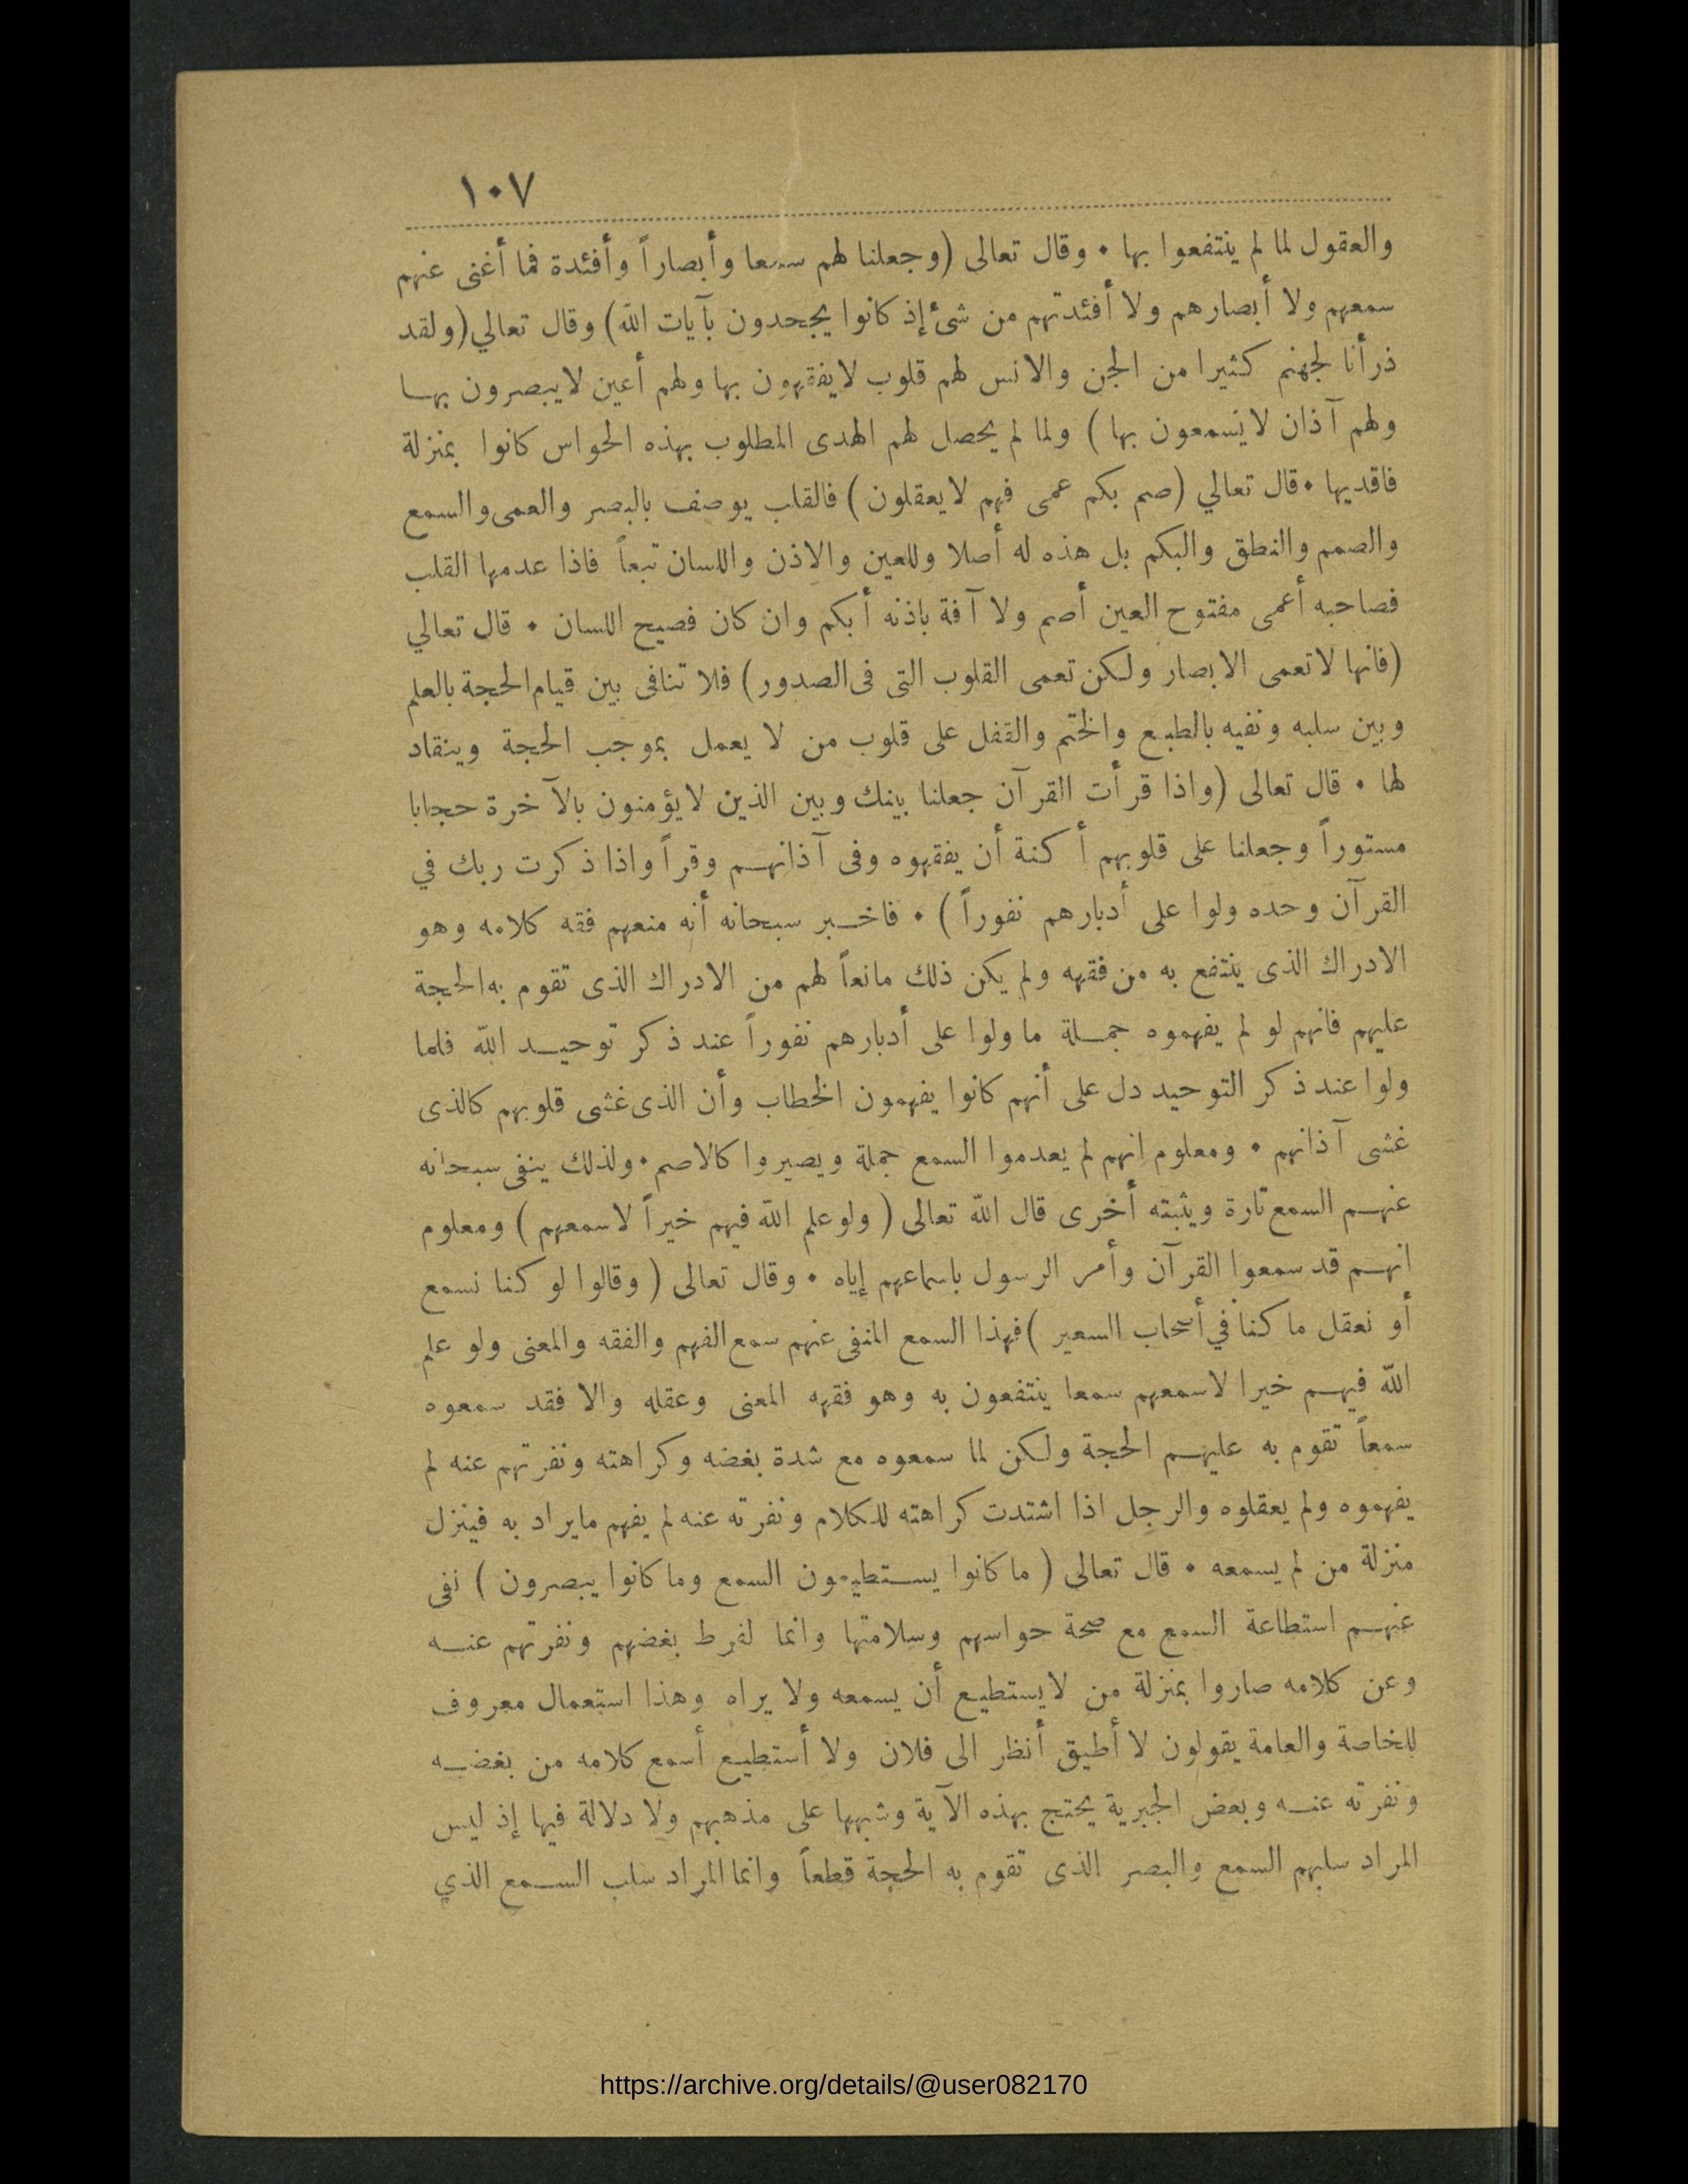 ١٠٧
والعقول لما لم ينتفعوا بها • وقال تعالى (وجعلنا لهم سمعا وأبصاراً وأفئدة فما أغنى عنهم
سمعهم ولا أبصارهم ولا أفئدتهم من شئ إذ كانوا يجحدون بآيات الله) وقال تعالي (ولقد
ذرأنا لجهنم كثيرا من الجن والانس لهم قلوب لايفقهون بها ولهم أعين لايبصرون بهـا
ولهم آذان لايسمعون بها ) ولما لم يحصل لهم الهدى المطلوب بهذه الحواس كانوا بمنزلة
فاقديها • قال تعالي (صم بكم عمى فهم لايعقلون ) فالقلب يوصف بالبصر والعمى والسمع
والصمم والنطق والبكم بل هذه له أصلا وللعين والاذن واللسان تبعاً فاذا عدمها القلب
فصاحبه أعمى مفتوح العين أصم ولا آفة باذنه أبكم وان كان فصيح اللسان • قال تعالي
(فانها لاتعمى الابصار ولكن تعمى القلوب التى فى الصدور) فلا تنافى بين قيام الحجة بالعلم
وبين سلبه ونفيه بالطبع والختم والقفل على قلوب من لا يعمل بموجب الحجة وينقاد
لها • قال تعالى (واذا قرأت القرآن جعلنا بينك وبين الذين لايؤمنون بالآخرة حجابا
مستوراً وجعلنا على قلوبهم أكنة أن يفقهوه وفى آذانهـم وقراً واذا ذكرت ربك في
القرآن وحده ولوا على أدبارهم نفوراً ) • فاخـبر سبحانه أنه منعهم فقه كلامه وهو
الادراك الذى ينتفع به من فقهه ولم يكن ذلك مانعاً لهم من الادراك الذى تقوم به الحجة
عليهم فانهم لو لم يفهموه جمـلة ما ولوا على أدبارهم نفوراً عند ذكر توحيـد الله فلما
ولوا عند ذكر التوحيد دل على أنهم كانوا يفهمون الخطاب وأن الذى غشى قلوبهم كالذى
غشى آذانهم • ومعلوم انهم لم يعدموا السمع جملة ويصيروا كالاصم • ولذلك ينفى سبحانه
عنهـم السمع تارة ويثبته أخرى قال الله تعالى ( ولو علم الله فيهم خيراً لاسمعهم ) ومعلوم
انهـم قد سمعوا القرآن وأمر الرسول باسماعهم إياه • وقال تعالى ( وقالوا لو كنا نسمع
أو نعقل ما كنا في أصحاب السعير ) فهذا السمع المنفى عنهم سمع الفهم والفقه والمعنى ولو علم
الله فيهـم خيرا لاسمعهم سمعا ينتفعون به وهو فقه المعنى وعقله والا فقد سمعوه
سمعاً تقوم به عليهـم الحجة ولكن لما سمعوه مع شدة بغضه وكراهته ونفرتهم عنه لم
يفهموه ولم يعقلوه والرجل اذا اشتدت كراهته للكلام ونفرته عنه لم يفهم مايراد به فينزل
منزلة من لم يسمعه • قال تعالى ( ما كانوا يسـتطيعون السمع وما كانوا يبصرون ) نفى
عنهـم استطاعة السمع مع صحة حواسهم وسلامتها وانما لفرط بغضهم ونفرتهم عنـه
وعن كلامه صاروا بمنزلة من لايستطيع أن يسمعه ولا يراه وهذا استعمال معروف
للخاصة والعامة يقولون لا أطيق أنظر الى فلان ولا أستطيع أسمع كلامه من بغضـه
ونفرته عنـه وبعض الجبرية يحتج بهذه الآية وشبهها على مذهبهم ولا دلالة فيها إذ ليس
المراد سلبهم السمع والبصر الذى تقوم به الحجة قطعاً وانما المراد سلب السـمع الذي
https://archive.org/details/@user082170